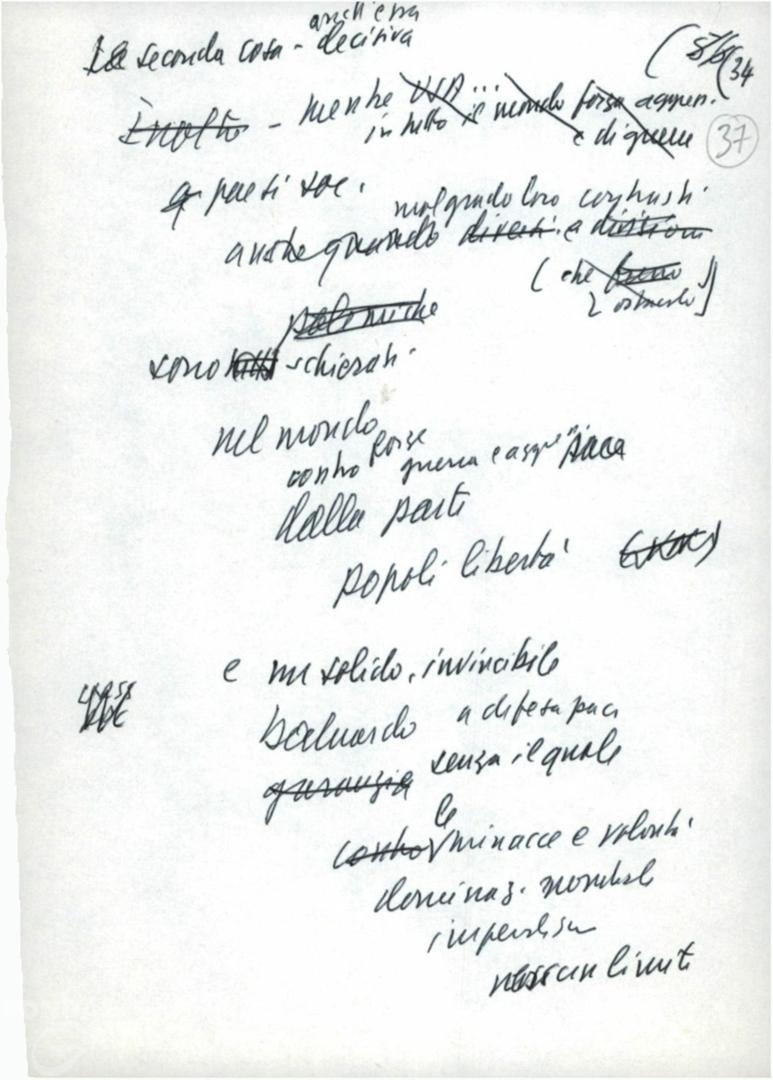 anch'essa
La seconda cosa - decisiva
(5/6(34
Inoltre - mentre USA ...
in tutto il mondo forza aggres.
e di guerra
37
paesi soc.
malgrado loro contrasti
anche quando diversi e divisioni
(che
polemiche
sono tutti schierati
nel mondo
contro forze guerra e aggr. pace
dalla parte
popoli libertà
e un solido, invincibile
URSS
baluardo a difesa pace
garanzia senza il quale
le
contro minacce e volontà
dominaz. mondiale
imperialism
nessun limite